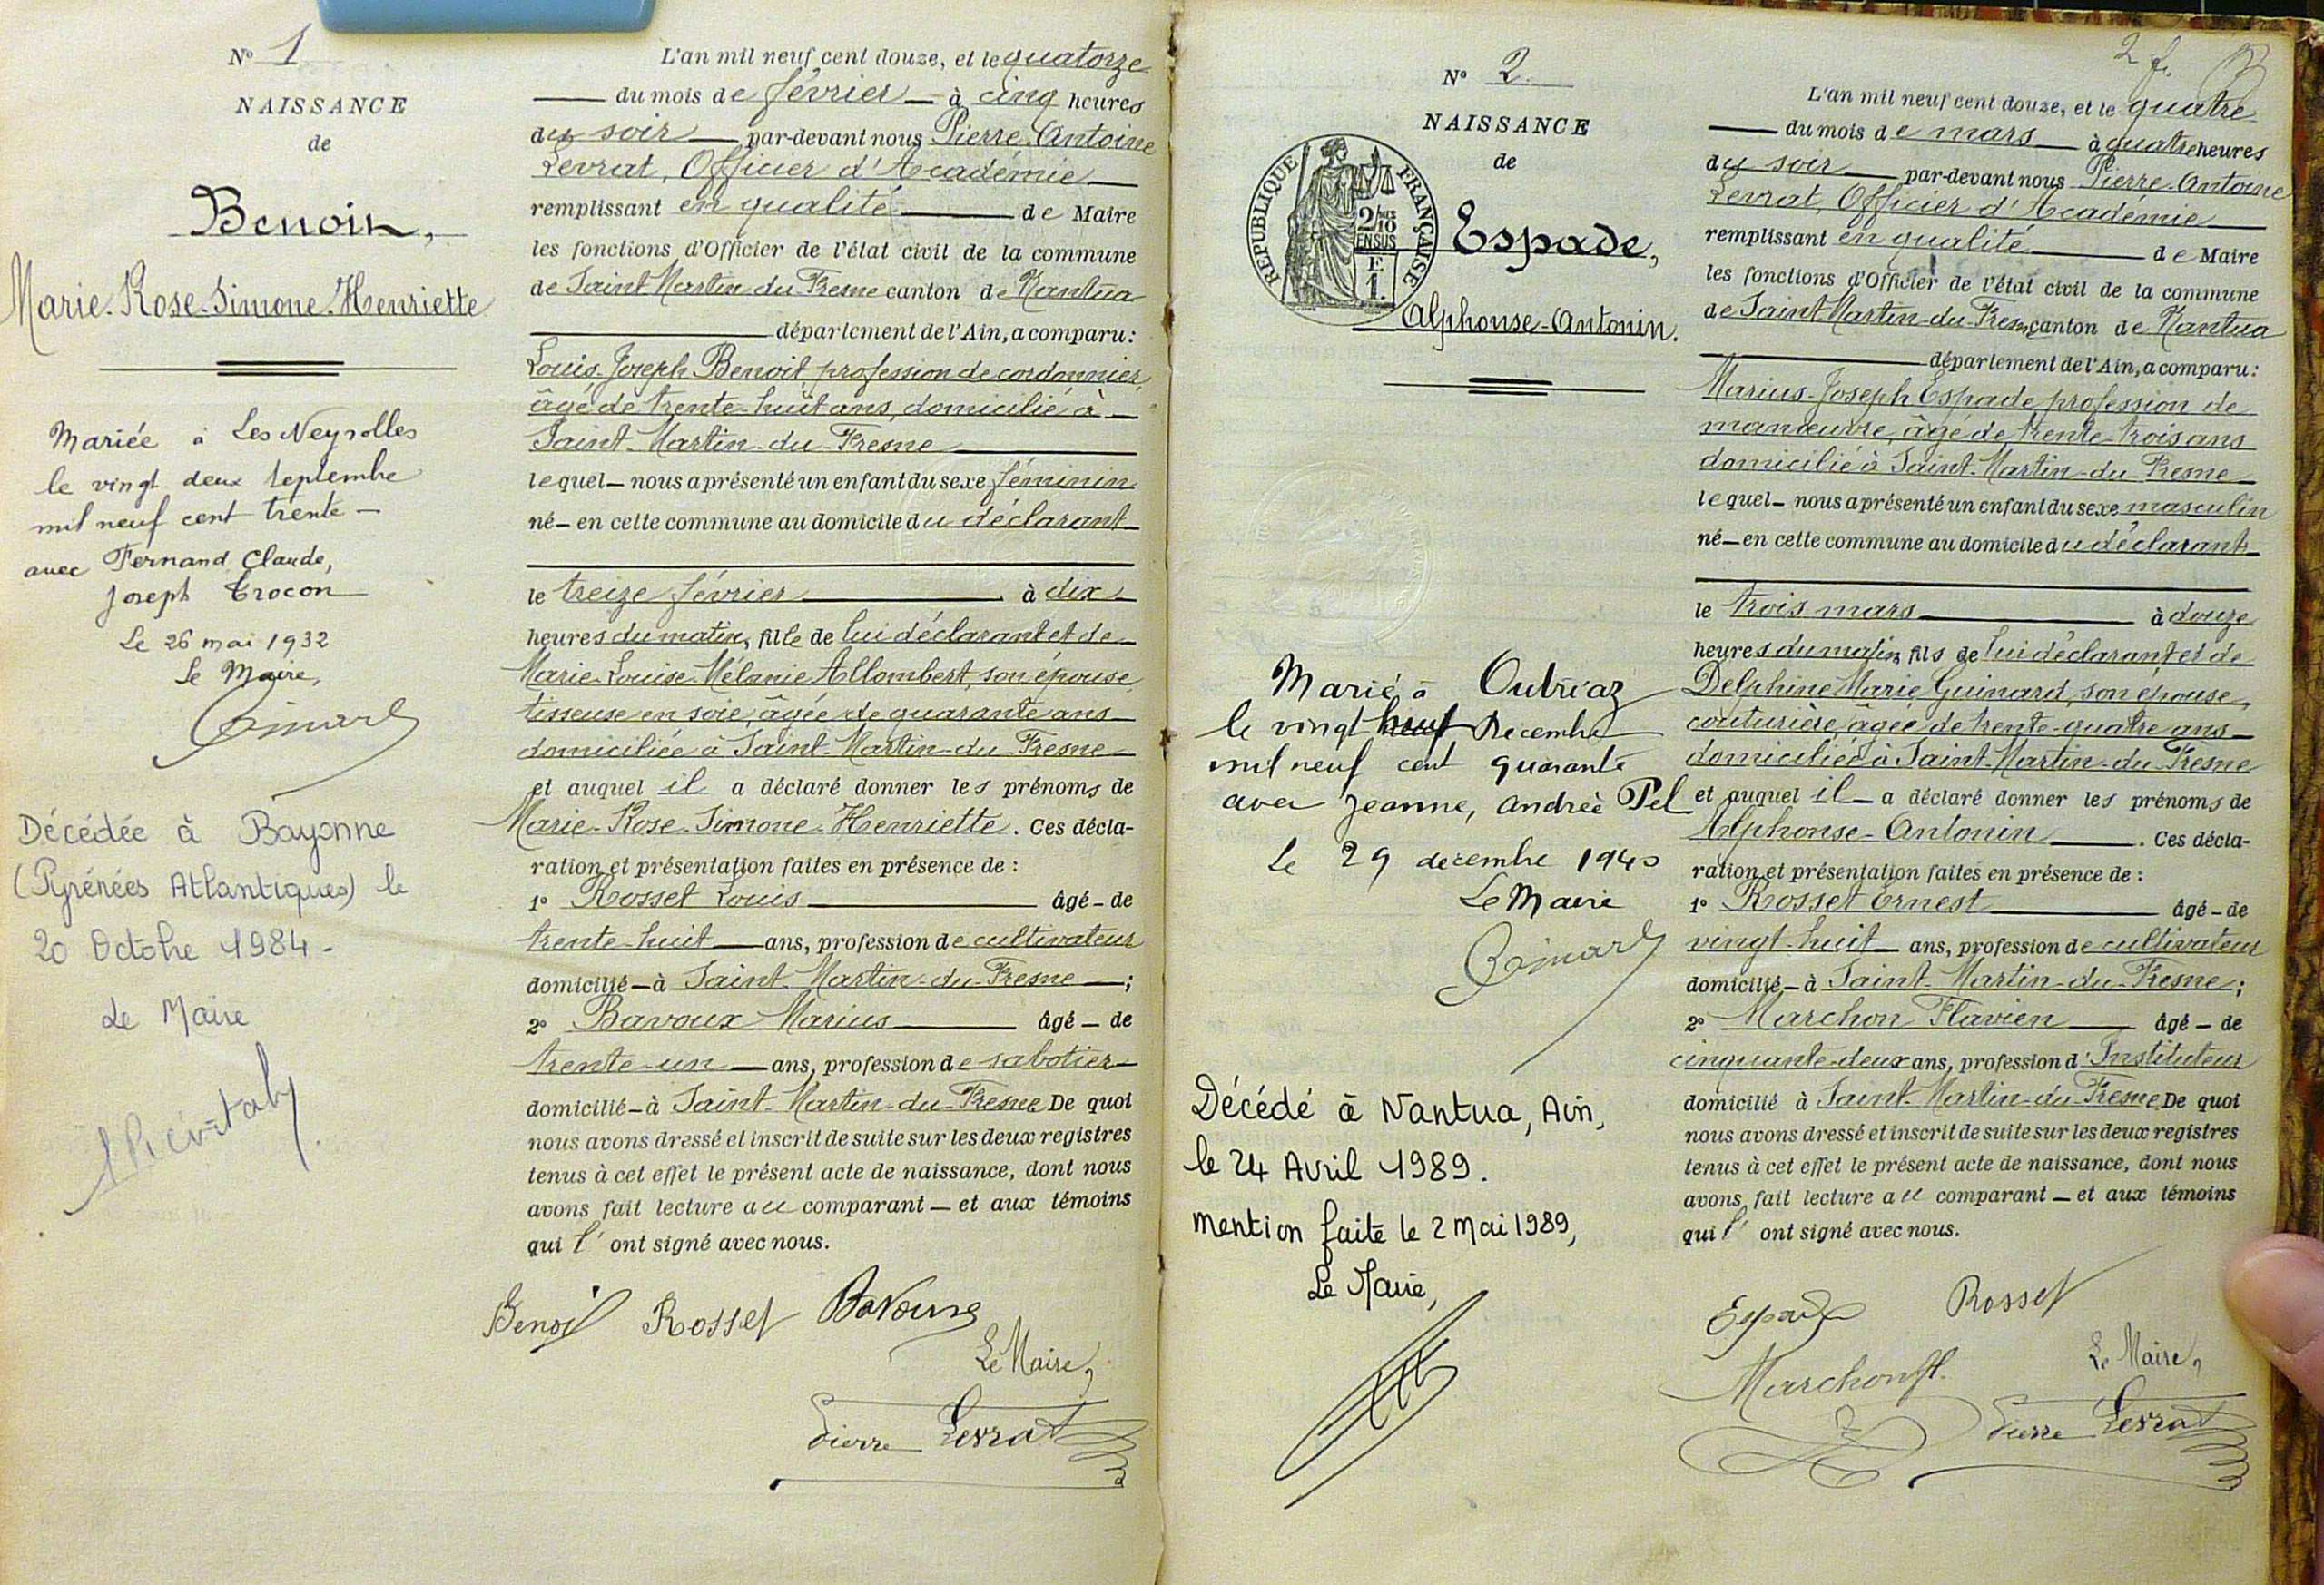 N° 1
NAISSANCE
de
Benoit,
Marie-Rose-Simone-Henriette
Mariée à Les Neyrolles
le vingt deux septembre
mil neuf cent trente —
avec Fernand Claude,
Joseph Trocon
Le 26 mai 1932
Le Maire,
Décédée à Bayonne
(Pyrénées Atlantiques) le
20 Octobre 1984 -
Le Maire
L'an mil neuf cent douze, et le quatorze
du mois de février à cinq heures
du soir par-devant nous Pierre-Antoine
Levrat, Officier d'Académie
remplissant en qualité de Maire
les fonctions d'Officier de l'état civil de la commune
de Saint Martin du Fresne canton de Nantua
département de l'Ain, a comparu :
Louis-Joseph Benoit profession de cordonnier,
âgé de trente-huit ans, domicilié à
Saint-Martin-du-Fresne
lequel nous a présenté un enfant du sexe féminin
né en cette commune au domicile du déclarant
le treize février à dix
heures du matin, fille de lui déclarant et de
Marie-Louise-Mélanie Allombert, son épouse,
tisseuse en soie, âgée de quarante ans
domiciliée à Saint-Martin-du-Fresne
et auquel il a déclaré donner les prénoms de
Marie-Rose-Simone-Henriette. Ces décla-
ration et présentation faites en présence de :
1° Rosset Louis âgé de
trente-huit ans, profession de cultivateur
domicilié à Saint-Martin-du-Fresne ;
2° Bavoux Marius âgé de
trente-un ans, profession de sabotier
domicilié à Saint-Martin-du-Fresne De quoi
nous avons dressé et inscrit de suite sur les deux registres
tenus à cet effet le présent acte de naissance, dont nous
avons fait lecture au comparant et aux témoins
qui l' ont signé avec nous.
Benoit Rosset Bavoux
Le Maire,
Pierre Levrat
N° 2
NAISSANCE
de
REPUBLIQUE FRANÇAISE
2/10 EN SUS
E.
1.
Espade,
Alphonse-Antonin.
Marié à Outriaz
le vingt neuf Décembre
mil neuf cent quarante
avec Jeanne, Andrée Pel
Le 29 décembre 1940
Le Maire
Décédé à Nantua, Ain,
le 24 Avril 1989.
mention faite le 2 Mai 1989,
Le Maire,
2 f.
L'an mil neuf cent douze, et le quatre
du mois de mars à quatre heures
du soir par-devant nous Pierre-Antoine
Levrat, Officier d'Académie
remplissant en qualité de Maire
les fonctions d'Officier de l'état civil de la commune
de Saint Martin-du-Fresne canton de Nantua
département de l'Ain, a comparu :
Marius-Joseph Espade profession de
manœuvre, âgé de trente-trois ans
domicilié à Saint-Martin-du-Fresne
lequel nous a présenté un enfant du sexe masculin
né en cette commune au domicile du déclarant
le trois mars à douze
heures du matin, fils de lui déclarant et de
Delphine Marie Guinard, son épouse,
couturière, âgée de trente-quatre ans
domiciliée à Saint-Martin-du-Fresne
et auquel il a déclaré donner les prénoms de
Alphonse-Antonin. Ces décla-
ration et présentation faites en présence de :
1° Rosset Ernest âgé de
vingt-huit ans, profession de cultivateur
domicilié à Saint-Martin-du-Fresne ;
2° Marchon Flavien âgé de
cinquante-deux ans, profession d'Instituteur
domicilié à Saint-Martin-du-Fresne De quoi
nous avons dressé et inscrit de suite sur les deux registres
tenus à cet effet le présent acte de naissance, dont nous
avons fait lecture au comparant et aux témoins
qui l' ont signé avec nous.
Espade Rosset
Marchon fl. Le Maire,
Pierre Levrat